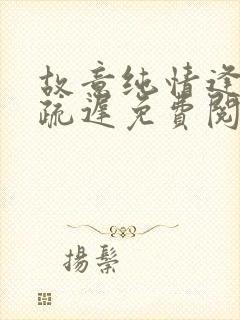 故意纯情逢
疏遲免費閱
揚鬃